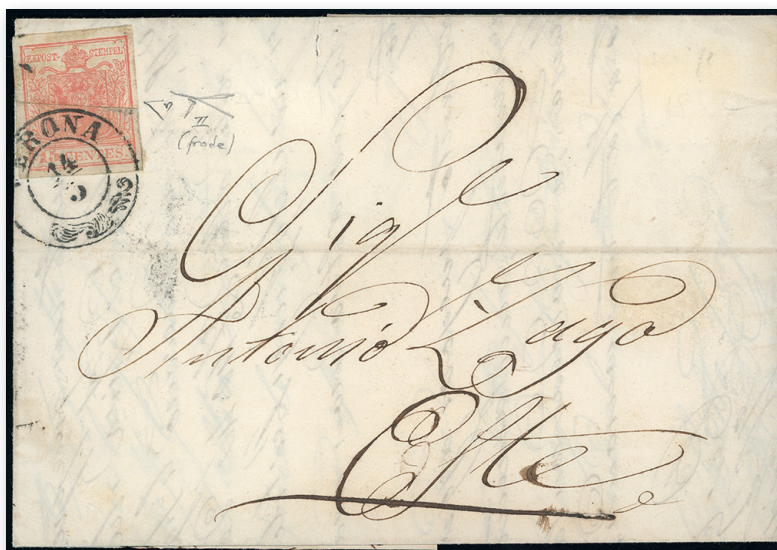 KPOST-STEMPEL
15 CENTES
VERONA
14
5
II
(frode)
Sig.
Antonio Zago
Este